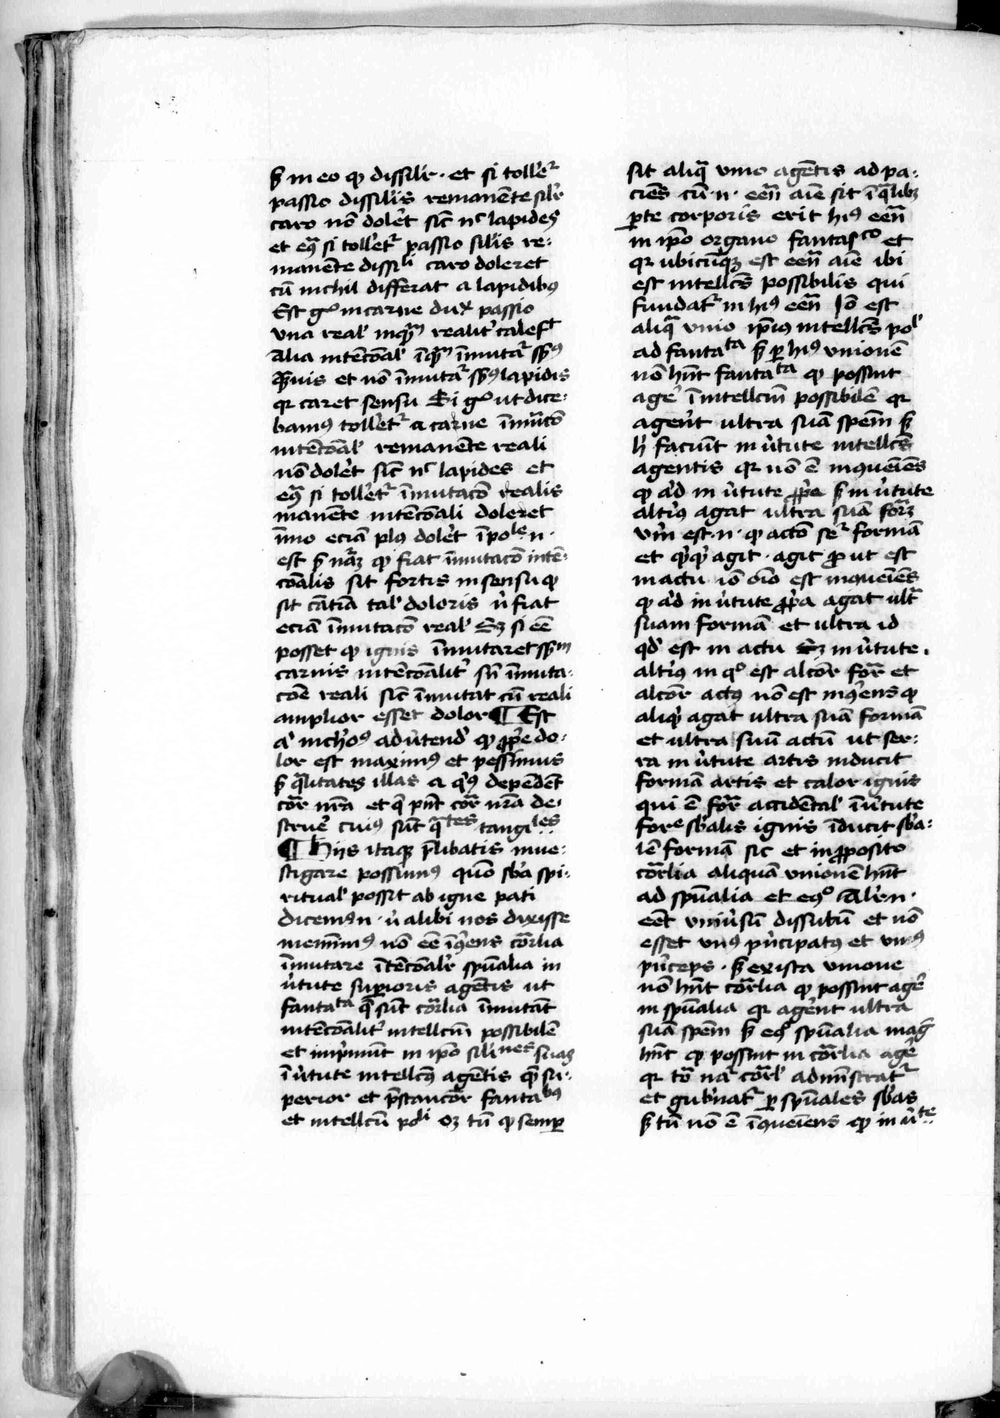 s̄ in eo qđ dissilir · et si tolleret᷑
passio dissil̄is remanēte sil̄r
caro nō dolēt sic̄ nᶜ lapides
et eq̄ si tollet᷑ passio sil̄is re:
manēte dissiˡⁱ caro doleret
cū nichil differat a lapidibꝰ
Est gͦ in carne dux passio
vna real' inqⁿ̄ realit᷑ calefᵗ
alia intēcōal' īqⁿ̄ īmutat᷑ spūꝰ
et nō īmutat᷑ spūꝰ lapidis
qr caret sensu Si gͦ ut dice:
bamꝰ tollet᷑ a carne īmutacō
intēcōal' remanēte reali
nō dolēt sic̄ nᶜ lapides et
eq̄ si tollet᷑ īmutacō realis
manēte intēcōali doleret
īmo eciā plꝰ dolēt īpoˡᵉ n ·
est s̄ nāʒ qđ fiat īmutacō intē:
cōalis sit fortis in sensu qđ
sit cātiā tal' doloris n̄ fiat
eciā īmutacō real' Sʒ si eē
posset qđ ignis īmutaret spūᵐ
carnis intēcōalit᷑ sn̄ īmuta:
cōe reali sic̄ īmutat cū reali
amplior esset dolor ¶ Est
a' nichoꝰ aduertend' qđ ꝓpe do:
lor est maximꝰ et pessimus
s̄ q̄litates illas a qͥꝰ dependēt
cor̄ nr̄a et q̄ pn̄t cor̄ nr̄a de:
struē cuiꝰ sūt q̄ᵗᵉˢ tangiˡᵉˢ
¶ Hiis itaqꝫ p̄libatis inue:
stigare possimꝰ quō sb̄a spi:
ritual' possit ab igne pati
dicemꝰ n · ū alibi nos dixisse
meminimꝰ nō eē īqͥens cor̄lia
īmutare ītēcōalr̄ spūalia in
ūtute supioris agētis ut
fantaᵗᵃ q̄ sūt cor̄lia īmutāt
intēcōalit᷑ intellcūm possibilē
et imprimūt in ipō siliⁿᵉˢ suas
ī ūtute intellcūs agētis q̄ su:
perior et p̄stancior̄ fantaᵇꝰ
et intellcū poˡⁱ Sʒ tū qđ semꝑ
sit aliq̄ vnio agētis ad pa:
ciēs cū · n · eēn̄ aīe sit ī q̄libꝫ
ꝑte corporis erit hꝰ eēn̄
in ipō organo fantasᶜᵒ et
qr ubicūqꝫ est eēn̄ aīe ibi
est intellcūs possibilis qui
fundat᷑ in hꝰ eēn̄ Iō est
aliq̄ vnio ipiꝰ intellcūs poˡ
ad fantaᵗᵃ s̄ ꝑ hꝰ vnionē
nō hn̄t fantaᵗᵃ qđ possint
agē ī intellcūm possibilē qr
agerēt ultra suā spēm s̄
h̄ faciūt in ūtute intellcūs
agentis qr nō ē inqueīens
qđ a'd in ūtute ꝓpa s̄ in ūtute
altiꝰ agat ultra suā for̄ʒ
vm̄ est · n · qđ actō seͬ formā
et qͥqͥ agit · agit ꝓ ut est
in actu iō oīo est inqueīens
qđ a'd in ūtute ꝓpa agat ult᷑
suam formā et ultra id
qđ est in actu Sʒ in ūtute ·
altiꝰ in qͦ est alcor̄ for̄ et
alcor̄ actꝰ nō est inqͥens qđ
aliqͥ agat ultra suā formā
et ultra suū actū ut ser:
ra in ūtute artis inducit
formā artis et calor ignis
qui ē for̄ accidētal' ī ūtute
foreᵉ sb̄alis ignis īducit sb̄a:
lē formā sic et in ꝓposito
cor̄lia aliquam vnionē hn̄t
ad spūalia et eqͦ aliēn ·
eēt vniūsū dissutū et nō
esset vnꝰ pͥncipatꝰ et vnꝰ
pͥnceps · s̄ ex ista vnione
nō hn̄t cor̄lia qđ possint agē
in spūalia qr agerēt ultra
suā spēm s̄ eqͦ spūalia mag̃
hn̄t qđ possint in cor̄lia agē
qr tō na cor̄l' administrat᷑
et gubnat᷑ ꝑ spūales sb̄as
s̄ tū nō ē īqueīens qđ in ūᵗᵉ